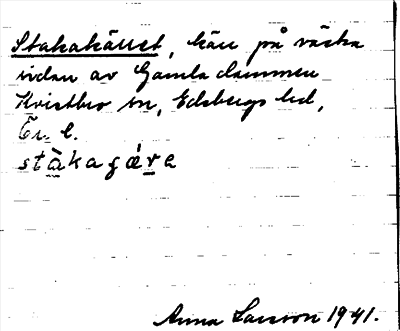 Stakakäret, kärr på västra
sidan av Gamla dammen
Kvistbro sn, Edsbergs hd,
Ör. l.
stàkagǽre
Anna Larsson 1941.